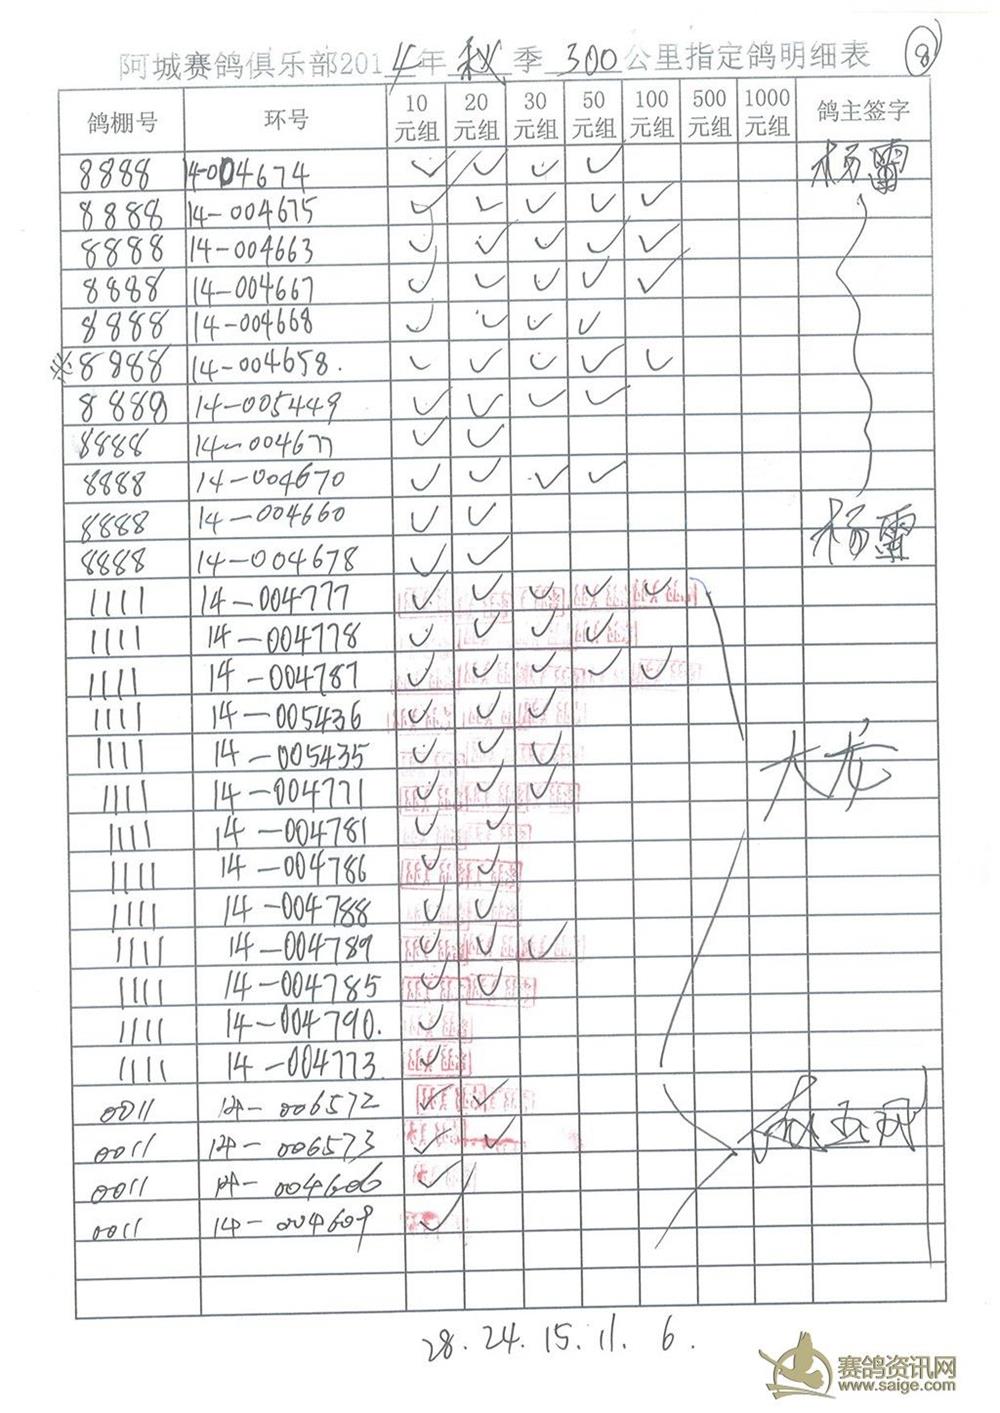 阿城赛鸽俱乐部2014年 秋 季 300 公里指定鸽明细表 ⑧
鸽棚号 环号 10元组 20元组 30元组 50元组 100元组 500元组 1000元组 鸽主签字
8888 14-004674 ✓ ✓ ✓ ✓ 杨雷
8888 14-004675 ✓ ✓ ✓ ✓ ✓
8888 14-004663 ✓ ✓ ✓ ✓ ✓
8888 14-004667 ✓ ✓ ✓ ✓ ✓
8888 14-004668 ✓ ✓ ✓ ✓
8888 14-004658. ✓ ✓ ✓ ✓ ✓
8888 14-005449 ✓ ✓ ✓ ✓
8888 14-004677 ✓ ✓
8888 14-004670 ✓ ✓ ✓ ✓
8888 14-004660 ✓ ✓ 杨雷
8888 14-004678 ✓ ✓
1111 14-004777 ✓ ✓ ✓ ✓ ✓
1111 14-004778 ✓ ✓ ✓ ✓
1111 14-004787 ✓ ✓ ✓ ✓ ✓
1111 14-005436 ✓ ✓ ✓
1111 14-005435 ✓ ✓ ✓ 大龙
1111 14-004771 ✓ ✓ ✓
1111 14-004781 ✓ ✓
1111 14-004786 ✓ ✓
1111 14-004788 ✓ ✓
1111 14-004789 ✓ ✓ ✓
1111 14-004785 ✓ ✓
1111 14-004790. ✓
1111 14-004773 ✓
0011 14-006572 ✓ ✓
0011 14-006573 ✓ ✓
0011 14-004606 ✓
0011 14-004609 ✓
28. 24. 15. 11. 6.
赛鸽资讯网
www.saige.com